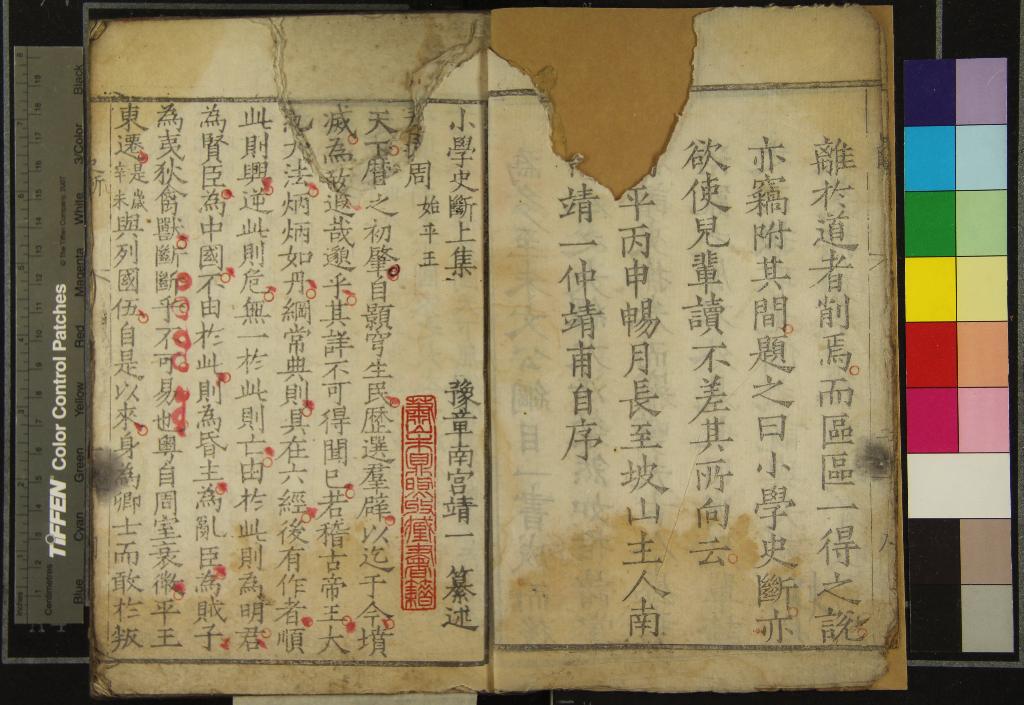 離於道者削焉而區區一得之說
亦竊附其間題之曰小學史斷亦
欲使兒輩讀不差其所向云
平丙申暢月長至坡山主人南
靖一仲靖甫自序
小學史斷上集
豫章南宮靖一 纂述
周 始平王
天下曆之初肇自顥穹生民歷選羣辟以迄于今墳
滅為故遐哉邈乎其詳不可得聞已若稽古帝王大
大法炳炳如丹綱常典則具在六經後有作者順
此則興逆此則危無一於此則亡由於此則為明君
為賢臣為中國不由於此則為昏主為亂臣為賊子
為夷狄禽獸斷斷乎不可易也粵自周室衰微平王
東遷 是歲辛未 與列國伍自是以來身為卿士而敢於叛
TIFFEN Color Control Patches
© The Tiffen Company, 2007
Inches
Centimetres
Blue
Cyan
Green
Yellow
Red
Magenta
White
3/Color
Black